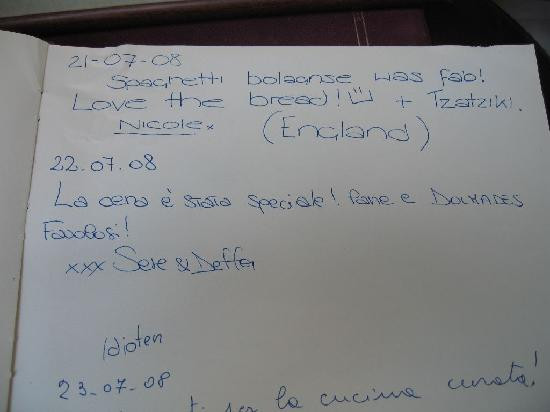 21-07-08
Spagnetti bolagnse was fab!
Love the bread! + Tzatziki.
Nicole x (England)
22.07.08
La cena è stata speciale! Pane e DOLMADES
Favolosi!
xxx Sere &
Idioten
23-07-08
per la cucina curata!